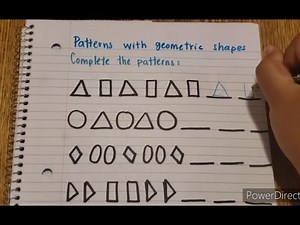 Patterns with geometric shapes
Complete the patterns:
PowerDirec